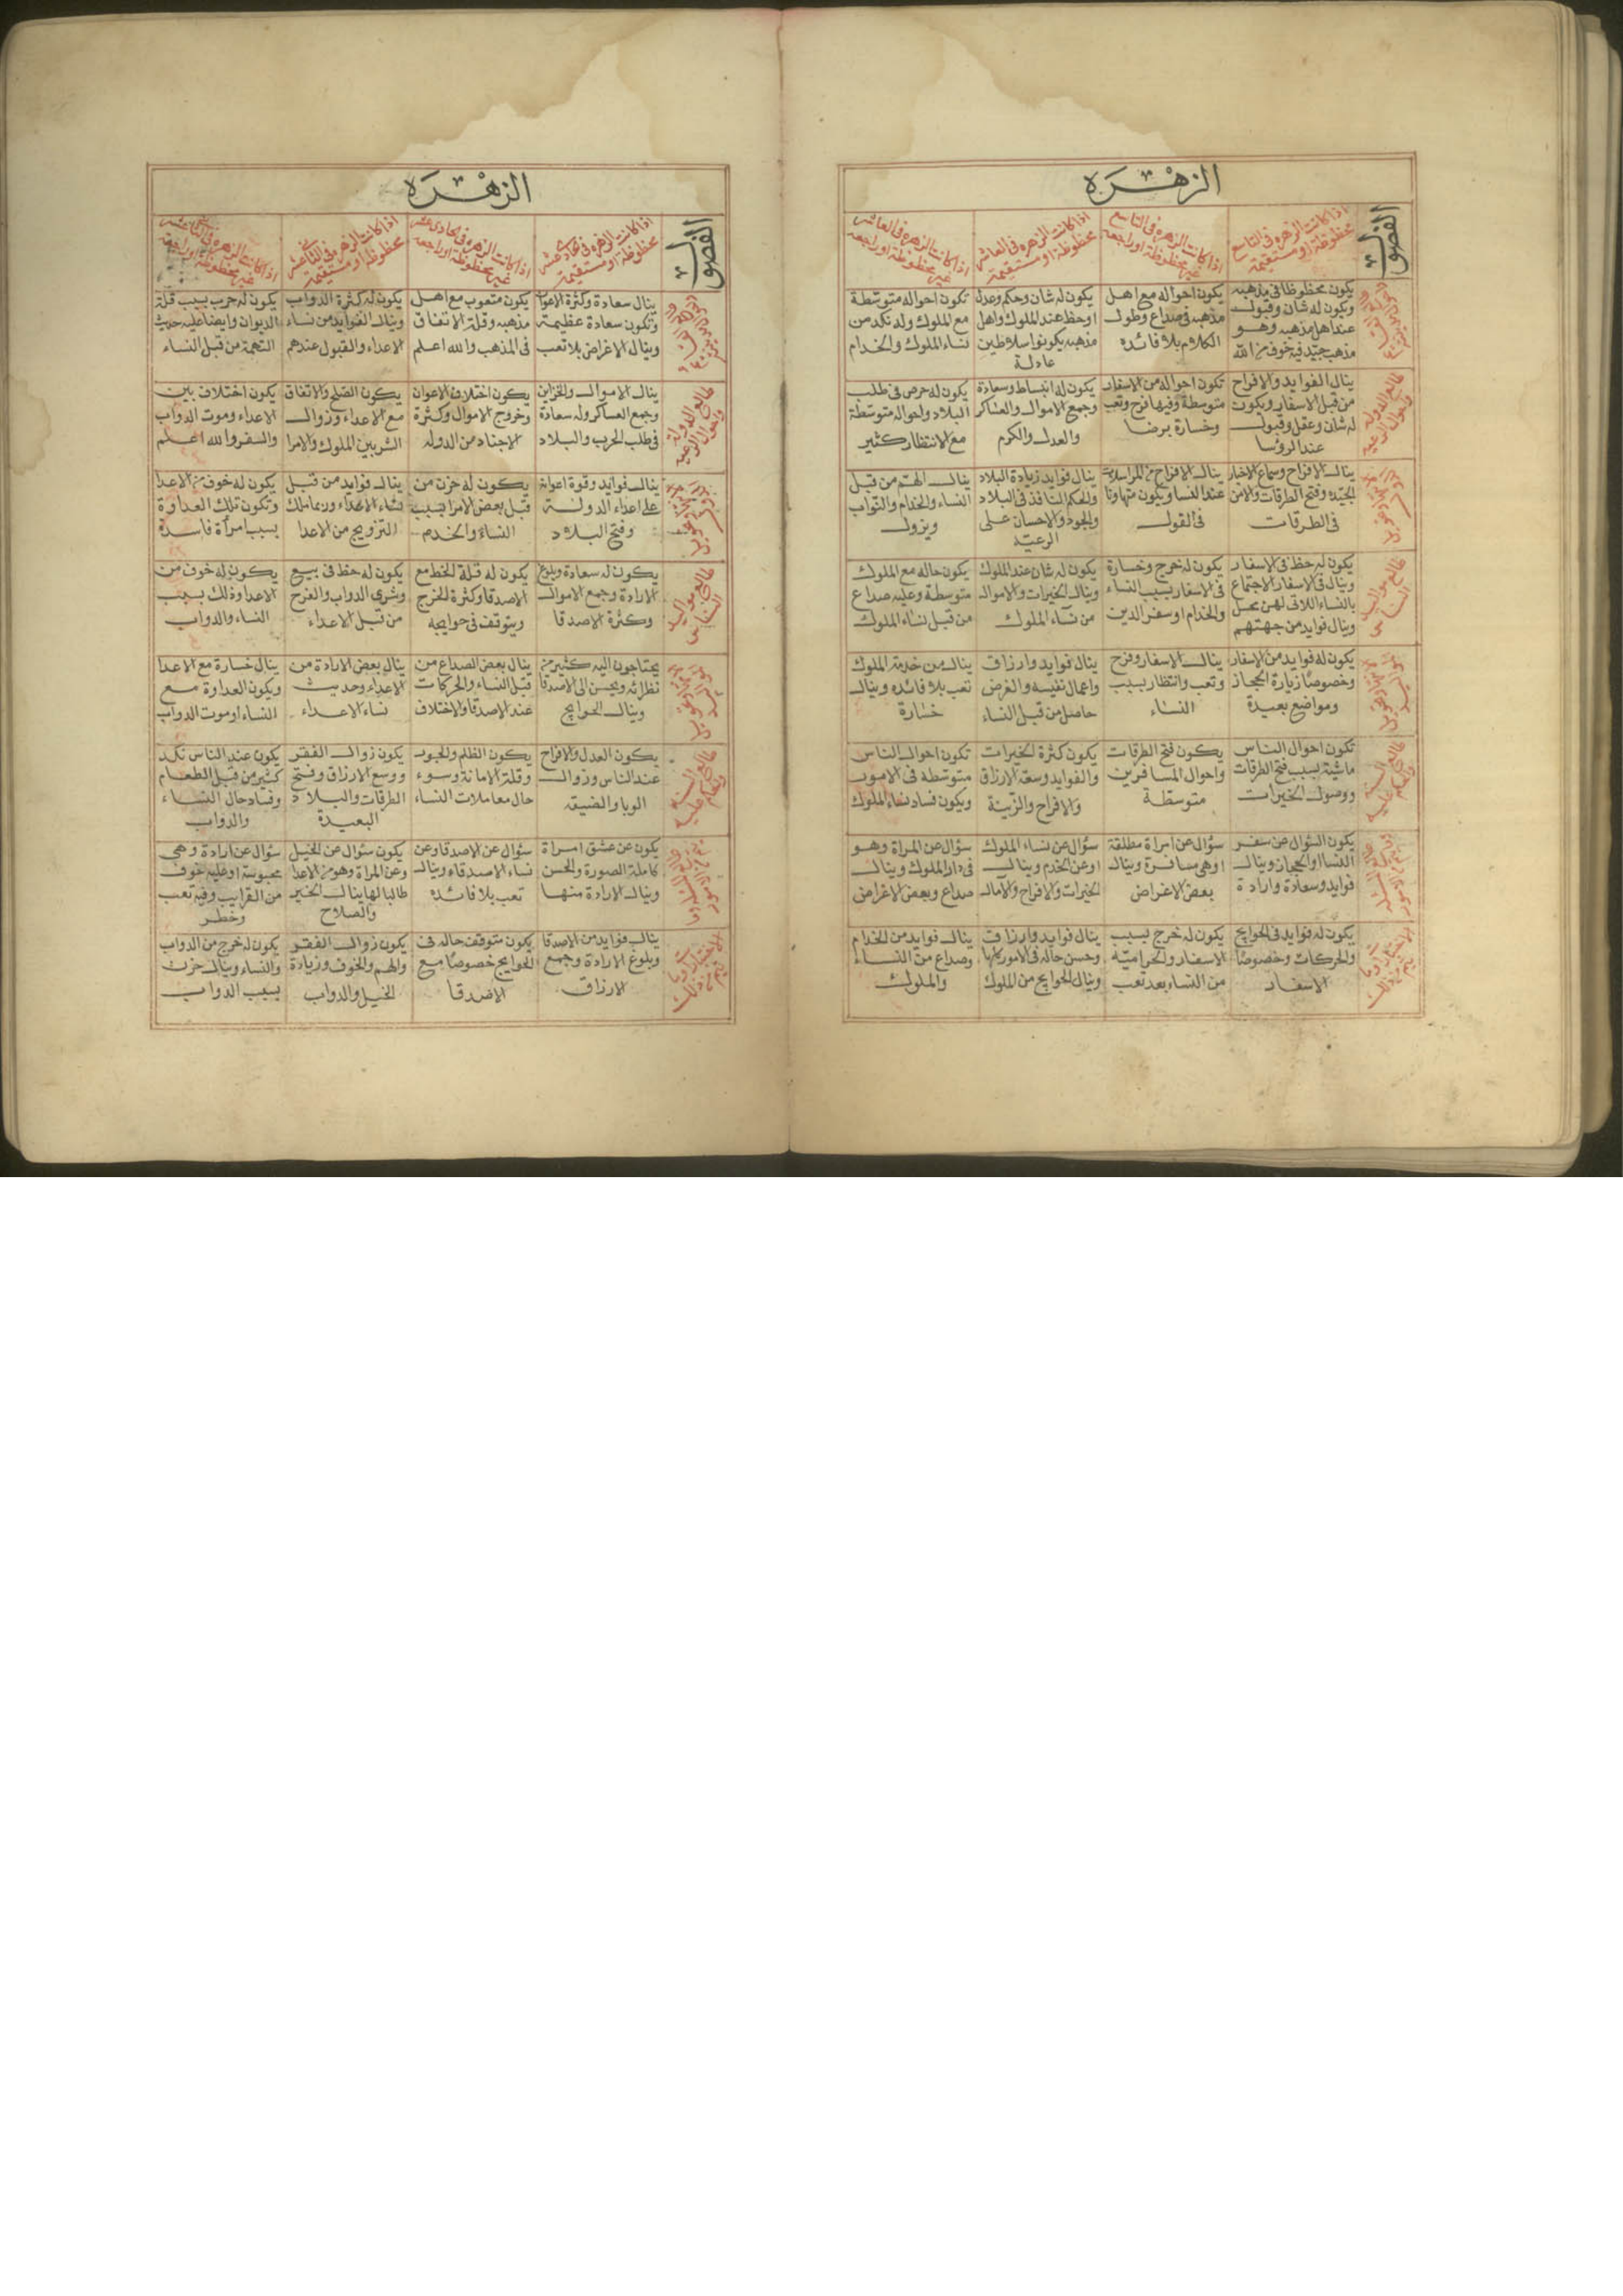 الزهرة
الفصول
اذا كانت الزهره فى التاسع
محظوظة او مستقيمة
اذا كانت الزهره فى التاسع
غير محظوظة او راجعة
اذا كانت الزهره فى العاشر
محظوظة او مستقيمة
اذا كانت الزهره فى العاشر
غير محظوظة او راجعة
يكون محظوظا فى مذهبه
ويكون له شان وقبول
عند اهل مذهبه وهو
مذهب جيّد فيه خوف من الله
يكون احواله مع اهل
مذهبه فى صداع وطول
الكلام بلا فائده
يكون له شان وحكم وعدل
او حظ عند الملوك واهل
مذهبه يكونوا سلاطين
عادلة
تكون احواله متوسّطة
مع الملوك وله نكد من
نساء الملوك والخدام
طالع الدولة
واحوال الرعيه
ينال الفوايد والافراح
من قبل الاسفار ويكون
له شان وعقل وقبول
عند الرؤسا
تكون احواله من الاسفار
متوسطة وفيها فرح وتعب
وخسارة برضا
يكون له انبساط وسعادة
وجمع الاموال والعساكر
والعدل والكرم
يكون له حرص فى طلب
البلاد واحواله متوسّطة
مع الانتظار كثير
ينال الافراح وسماع الاخبار
الجيّدة وفتح الطرقات والامن
فى الطرقات
ينال الافراح من المراسلة
عند النسا ويكون متهاونا
فى القول
ينال فوايد زيادة البلاد
والحكم النافذ فى البلاد
والجود والاحسان على
الرعيّة
ينال الهمّ من قبل
النساء والخدام والنواب
ويزول
طالع مواليد
الناس
يكون له حظ فى الاسفار
وينال فى الاسفار الاجتماع
بالنساء اللاتى لهنّ محل
وينال فوايد من جهتهم
يكون له خرج وخسارة
فى الاسفار بسبب النساء
والخدام او سفر الدين
يكون له شان عند الملوك
وينال الخيرات والاموال
من نساء الملوك
يكون حاله مع الملوك
متوسطة وعليه صداع
من قبل نساء الملوك
يكون له فوايد من الاسفار
وخصوصًا زيارة الحجاز
ومواضع بعيدة
ينال الاسفار وفرح
وتعب وانتظار بسبب
النساء
ينال فوايد وارزاق
واعمال نفيسه والغرض
حاصل من قبل النساء
ينال من خدمة الملوك
تعب بلا فائده وينال
خسارة
تكون احوال الناس
ماشية بسبب فتح الطرقات
ووصول الخيرات
يكون فتح الطرقات
واحوال المسافرين
متوسطة
يكون كثرة الخيرات
والفوايد وسعة الارزاق
والافراح والزّينة
تكون احوال الناس
متوسّطة فى الامور
ويكون فساد نساء الملوك
يكون السّؤال عن سفر
النسا او الحجاز وينال
فوايد وسعادة وارادة
سؤال عن امراة مطلقة
او هى مسافرة وينال
بعض الاغراض
سؤال عن نساء الملوك
او عن الخدم وينال
الخيرات والافراح والآمال
سؤال عن المراة وهو
فى دار الملوك وينال
صداع وبعض الاغراض
يكون له فوايد فى الحوايج
والحركات وخصوصًا
الاسفار
يكون له خرج بسبب
الاسفار والحراميّة
من النساء بعد تعب
ينال فوايد وارزاق
وحسن حاله فى الامور كلها
وينال الحوايج من الملوك
ينال فوايد من الخدام
وصداع من النساء
والملوك
الزهرة
الفصول
اذا كانت الزهره فى الحادى عشر
محظوظة او مستقيمة
اذا كانت الزهره فى الحادى عشر
غير محظوظة او راجعة
اذا كانت الزهره فى الثانى عشر
محظوظة او مستقيمة
اذا كانت الزهره فى الثانى عشر
غير محظوظة او راجعة
ينال سعادة وكثرة الاعوان
وتكون سعادة عظيمة
وينال الاغراض بلا تعب
يكون متعوب مع اهل
مذهبه وقلة الاتفاق
فى المذهب والله اعلم
يكون له كثرة الدواب
وينال الفوايد من نساء
الاعداء والقبول عندهم
يكون له حرب بسبب قلة
الديوان وايضا عليه حديث
التهمة من قبل النساء
طالع الدولة
واحوال الرعيه
ينال الاموال والخزاين
وجمع العساكر وله سعادة
فى طلب الحرب والبلاد
يكون اختلاف الاعوان
وخروج الاموال وكثرة
الاجناد من الدوله
يكون الصّلح والاتفاق
مع الاعداء وزوال
الشر بين الملوك والامرا
يكون اختلاف بين
الاعداء وموت الدواب
والسفر والله اعلم
ينال فوايد وقوة اعوانه
على اعداء الدولة
وفتح البلاد
يكون له حزن من
قبل بعض الامرا بسبب
النساء والخدم
ينال فوايد من قبل
نساء الاعداء وربما ملك
التزويج من الاعدا
يكون له خوف من الاعدا
وتكون تلك العداوة
بسبب امرأة فاسدة
طالع مواليد
الناس
يكون له سعادة وبلوغ
الارادة وجمع الاموال
وكثرة الاصدقا
يكون له قلة الحظ مع
الاصدقا وكثرة الخرج
ويتوقف فى حوايجه
يكون له حظ فى بيع
وشرى الدواب والفرح
من قبل الاعداء
يكون له خوف من
الاعدا وذلك بسبب
النساء والدواب
يحتاجون اليه كثير من
نظرائه ويحسن الى الاصدقا
وينال الحوايج
ينال بعض الصداع من
قبل النساء والحركات
عند الاصدقا والاختلاف
ينال بعض الارادة من
الاعداء وحديث
نساء الاعداء
ينال خسارة مع الاعدا
ويكون العداوة مع
النساء او موت الدواب
يكون العدل والافراح
عند الناس وزوال
الوبا والضيقه
يكون الظلم والجور
وقلة الامانة وسوء
حال معاملات النساء
يكون زوال الفقر
ووسع الارزاق وفتح
الطرقات والبلاد
البعيدة
يكون عند الناس نكد
كثير من قبل الطعام
وفساد حال النساء
والدواب
يكون عن عشق امراة
كاملة الصورة والحسن
وينال الارادة منها
سؤال عن الاصدقا وعن
نساء الاصدقاء وينال
تعب بلا فائده
يكون سئوال عن الخيل
وعن المراة وهو من الاعدا
طالبا لها ينال الخير
والصلاح
سؤال عن ارادة وهى
محبوسة او عليه خوف
من القرايب وفيه تعب
وخطر
ينال فوايد من الاصدقا
وبلوغ الارادة وجمع
الارزاق
يكون متوقف حاله فى
الحوايج خصوصًا مع
الاصدقا
يكون زوال الفقر
والهم والخوف وزيادة
الخيل والدواب
يكون له خرج من الدواب
والنساء وينال حزن
بسبب الدواب